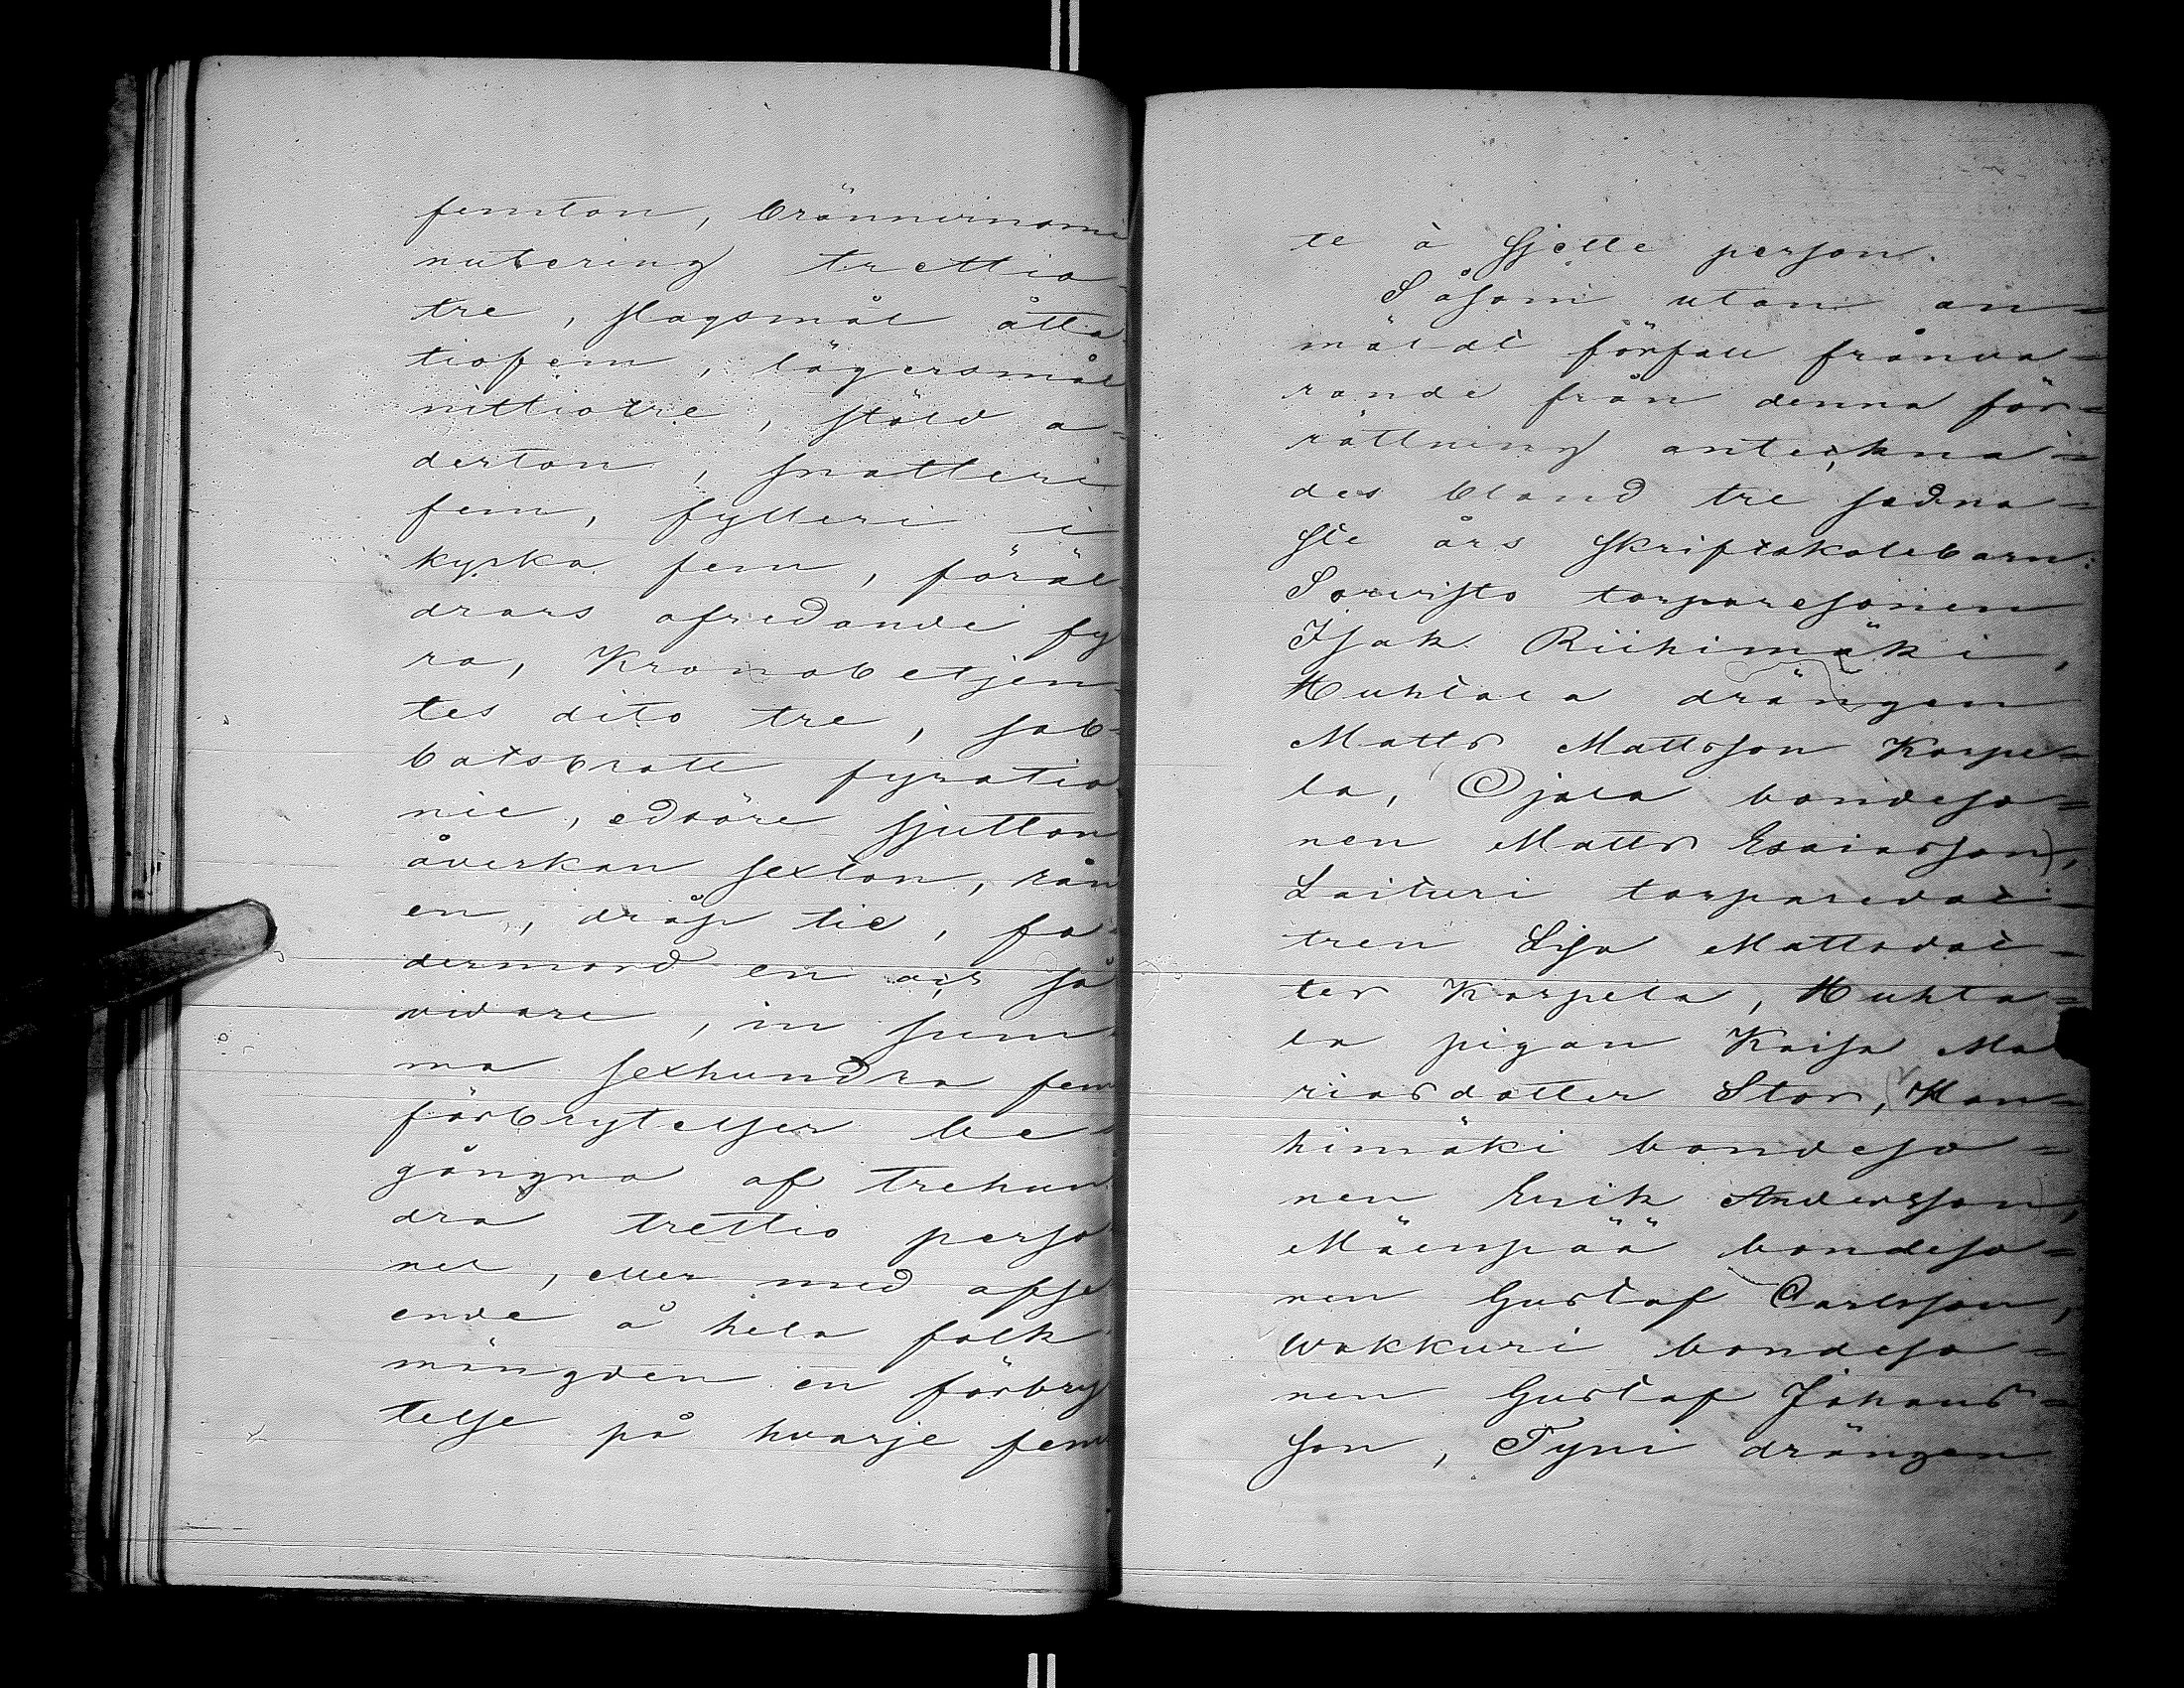 femton, brännvinsmi
nutering trettio-
tre, slagsmål åtta-
tiofem, lägersmål
nittiotre, stöld a-
derton, snatteri
fem, fylleri i
kyrka fem, föräl-
drars ofredande fy
ra, Kronobetjen-
tes dito tre, sab-
batsbrott fyratio
nie, edsöre sjutton
åverkan sexton, rån
en, dråp tie, fa-
dermord en och så
vidare, in sum
ma sexhundra fem
förbrytelser be-
gångna af trehun
dra trettio perso
ner, eller med afse
ende å hela folk
mängden en förbry
telse på hvarje fem
te à sjette person.
Såsom utan an=
mäldt förfall frånva=
rande från denna för=
rättning anteckna=
des bland tre sedna=
ste års skriftskolebarn:
Soruisto torparesonen
Isak Riihimäki,
Huhtala drängen
Matts Mattsson Korpe=
la, Ojala bondeso=
nen Matts Esaiasson),
Laituri torparedot=
tren Lisa Mattsdot=
ter Korpela, Huhta=
la pigan Kaisa Ma
riasdotter Stor, Han=
himäki bondeso=
nen Erik Andersson,
Mäenpää bondeso=
nen Gustaf Carlsson,
Wakkuri bondeso=
nen Gustaf Johans=
son, Tyni drängen